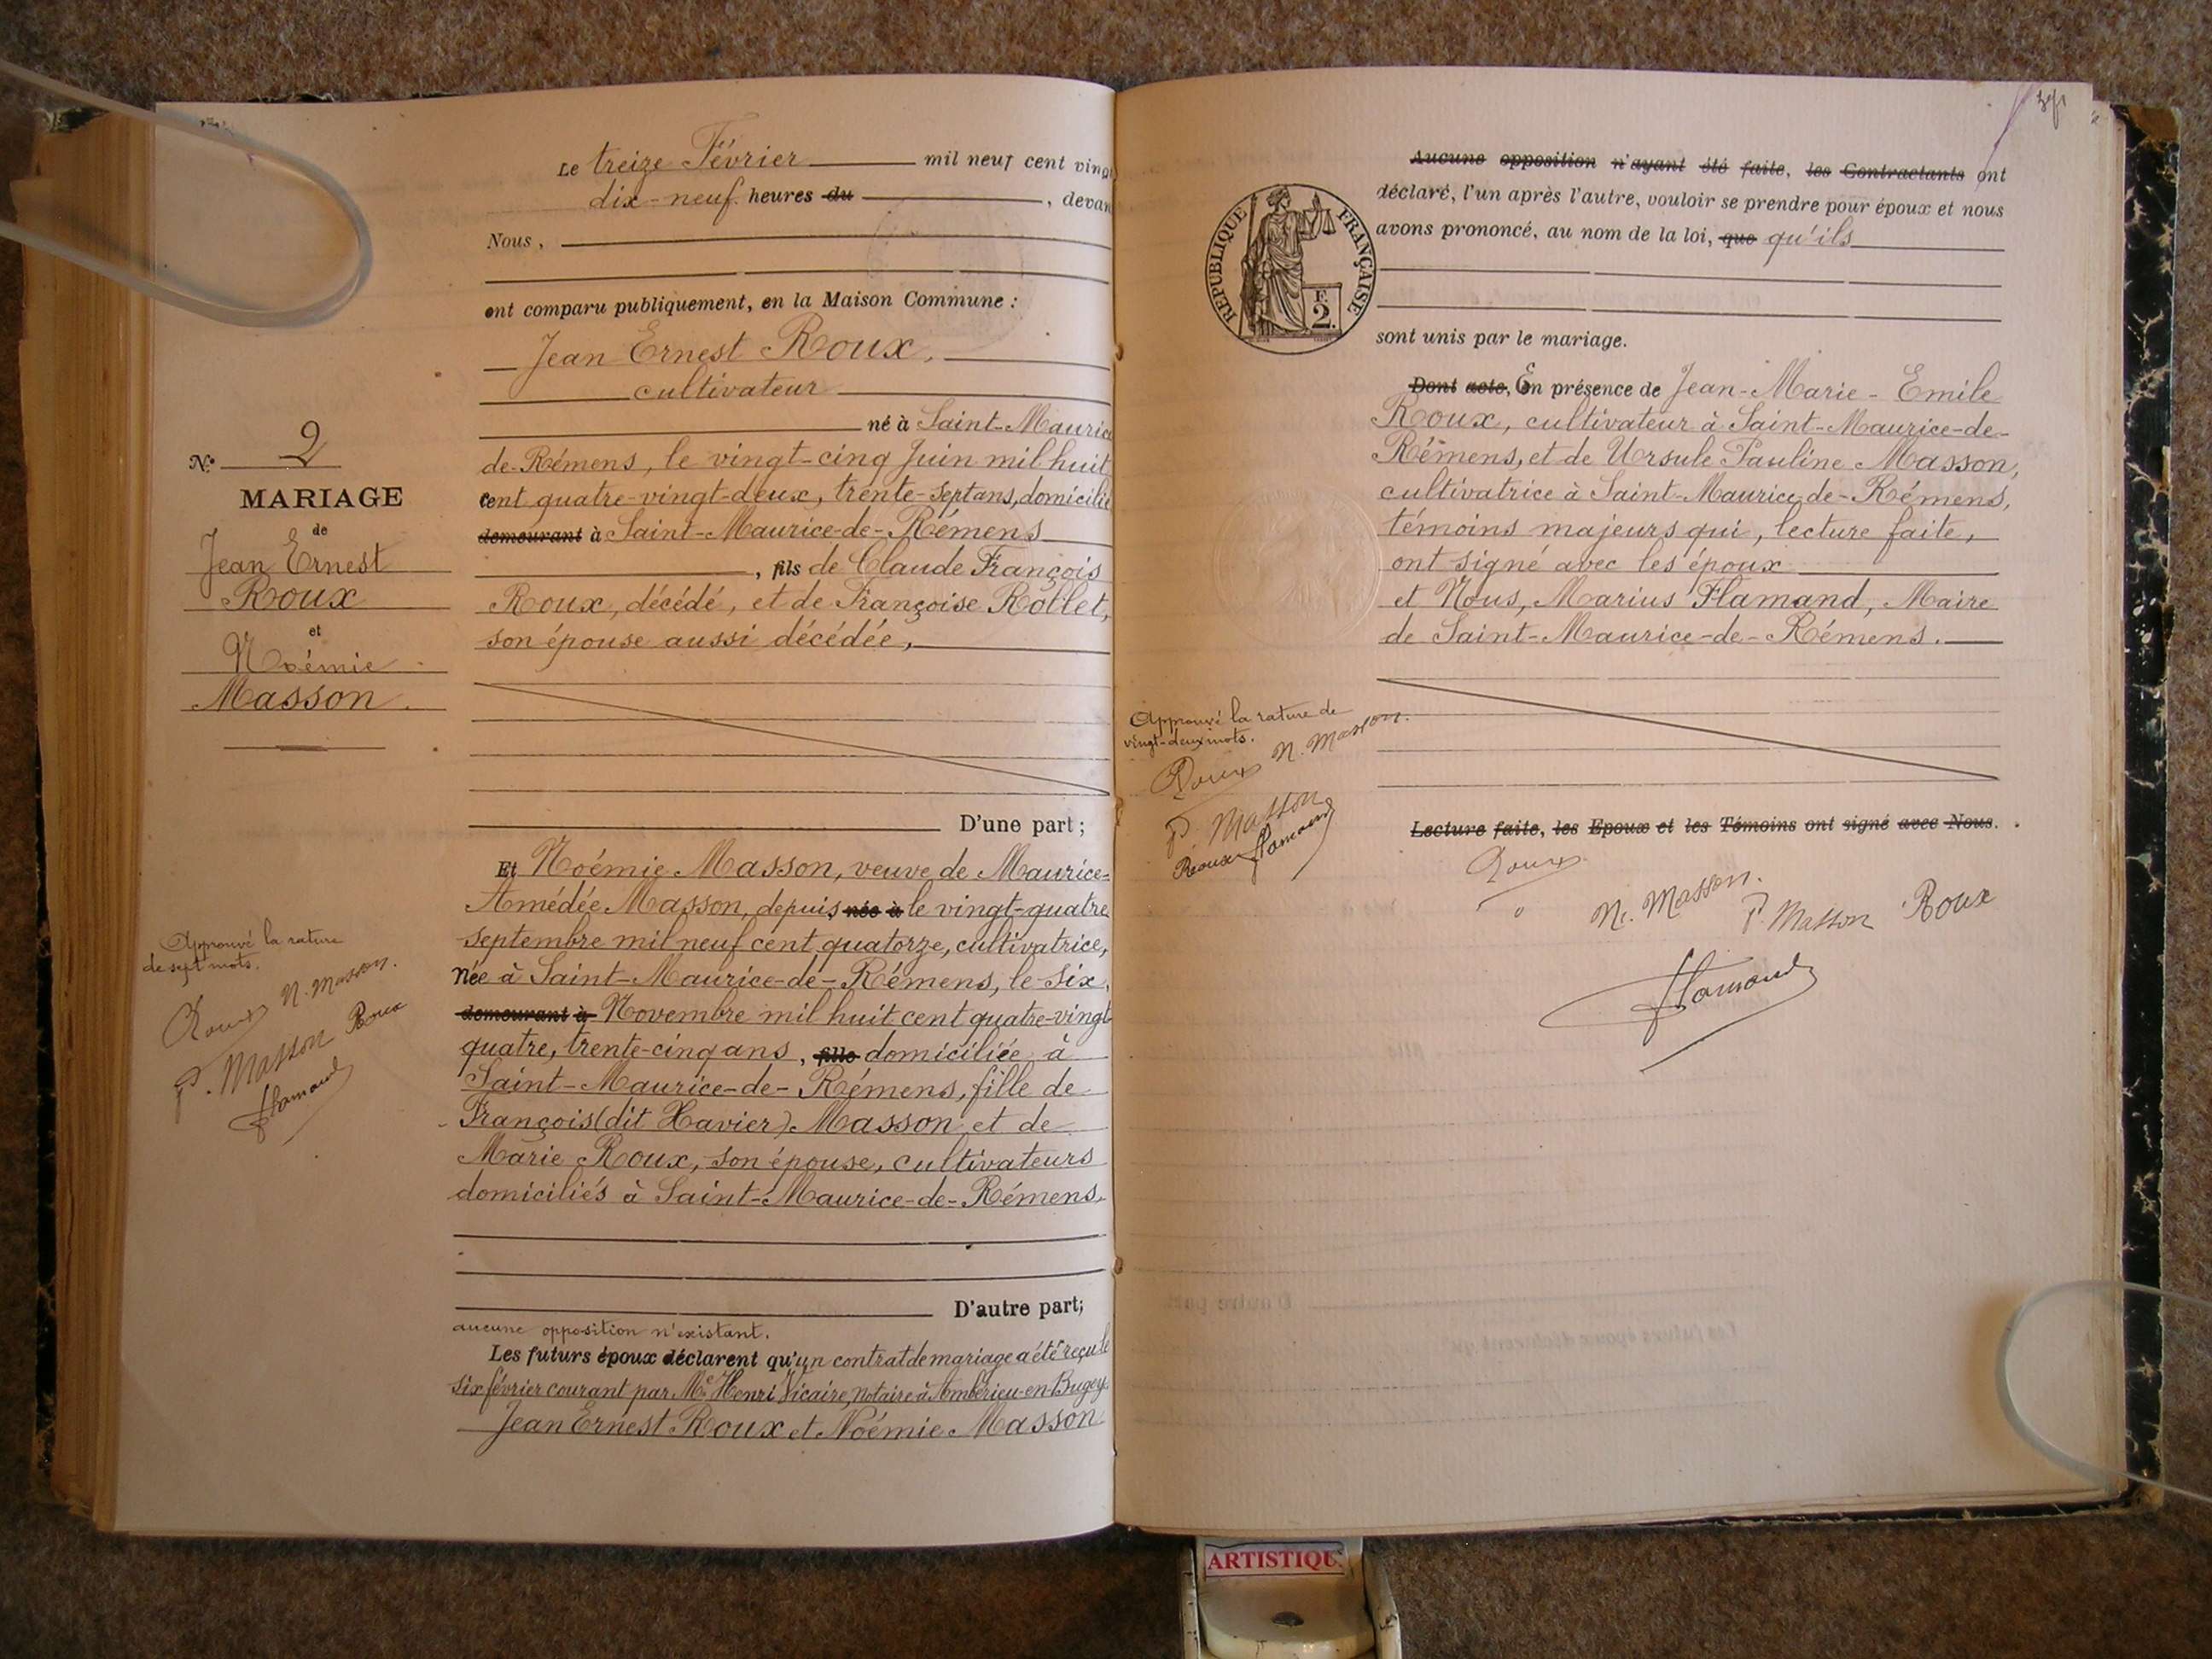 Le treize Février mil neuf cent vingt
dix-neuf heures du , devan
Nous,
ont comparu publiquement, en la Maison Commune :
Jean Ernest Roux,
cultivateur
né à Saint-Maurice
de-Rémens, le vingt-cinq Juin mil huit
cent quatre-vingt-deux, trente-sept ans, domicilié
demeurant à Saint-Maurice-de-Rémens
, fils de Claude François
Roux, décédé, et de Françoise Rollet,
son épouse aussi décédée,
D'une part ;
Et Noémie Masson, veuve de Maurice-
Amédée Masson, depuis née à le vingt-quatre
septembre mil neuf cent quatorze, cultivatrice,
Née à Saint-Maurice-de-Rémens, le six
demeurant à Novembre mil huit cent quatre-vingt
quatre, trente-cinq ans, fille domiciliée à
Saint-Maurice-de-Rémens, fille de
François (dit Xavier) Masson et de
Marie Roux, son épouse, cultivateurs
domiciliés à Saint-Maurice-de-Rémens.
D'autre part;
aucune opposition n'existant.
Les futurs époux déclarent qu'un contrat de mariage a été reçu le
six février courant par Me Henri Vicaire, notaire à Ambérieu-en-Bugey
Jean Ernest Roux et Noémie Masson
N° 2
MARIAGE
de
Jean Ernest
Roux
et
Noémie
Masson.
Approuvé la rature
de sept mots.
Roux N. Masson.
P. Masson Roux
Flamand
Aucune opposition n'ayant été faite, les Contractants ont
déclaré, l'un après l'autre, vouloir se prendre pour époux et nous
avons prononcé, au nom de la loi, que qu'ils
sont unis par le mariage.
REPUBLIQUE FRANÇAISE
F.
2.
Dont acte, En présence de Jean-Marie-Emile
Roux, cultivateur à Saint-Maurice-de-
Rémens, et de Ursule Pauline Masson,
cultivatrice à Saint-Maurice-de-Rémens,
témoins majeurs qui, lecture faite,
ont signé avec les époux
et Nous, Marius Flamand, Maire
de Saint-Maurice-de-Rémens.
Approuvé la rature de
vingt-deux mots.
Roux N. Masson.
P. Masson
Roux Flamand
Lecture faite, les Epoux et les Témoins ont signé avec Nous.
Roux
N. Masson. P. Masson Roux
Flamand
ARTISTIQU